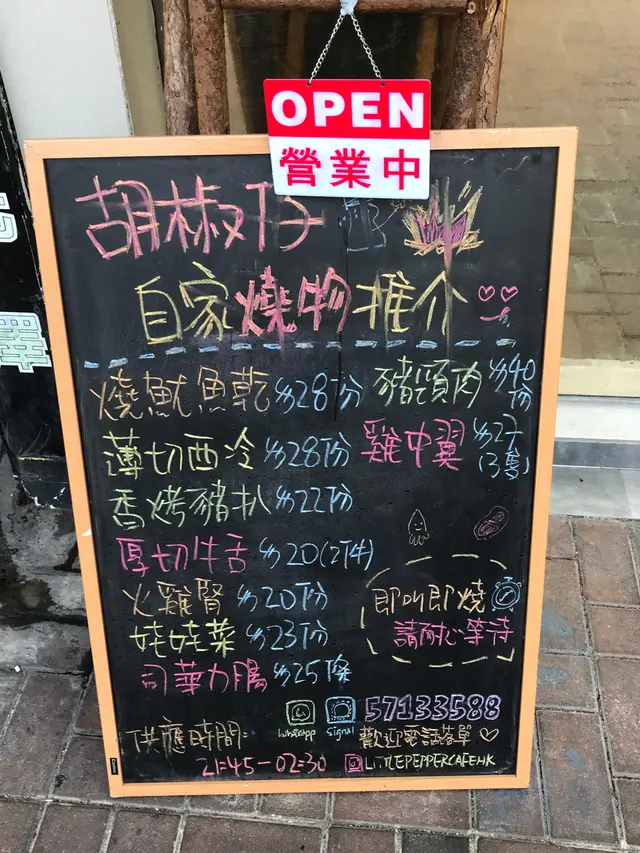 OPEN
營業中
胡椒仔
自家燒物推介
燒魷魚乾 $28份
豬頸肉 $40份
薄切西冷 $28份
雞中翼 $27(3隻)
香烤豬扒 $22份
厚切牛舌 $20(2件)
火雞腎 $20份
娃娃菜 $23份
司華力腸 $25條
即叫即燒
請耐心等待
供應時間:
21:45-02:30
Whatsapp Signal 57133588
歡迎電話落單
LITTLEPEPPERCAFE.HK
澤